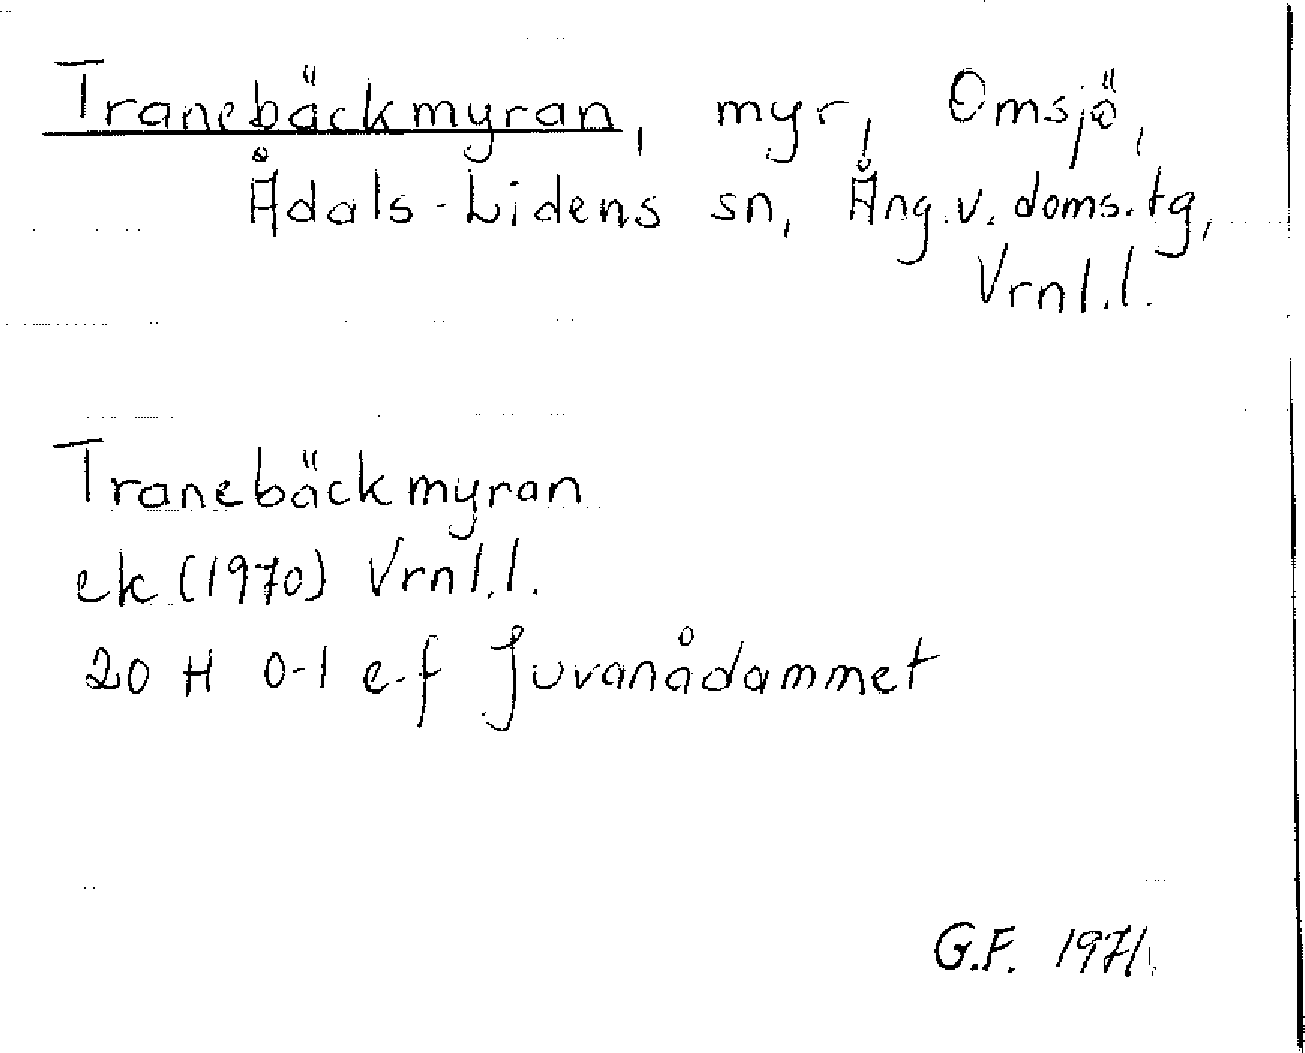 Tranebäckmyran, myr, Omsjö,
Ådals-Lidens sn, Ång.v. doms.tg,
Vrnl.l.
Tranebäckmyran
ek (1970) Vrnl.l.
20 H 0-1 e-f Juvanådammet
G.F. 1971.